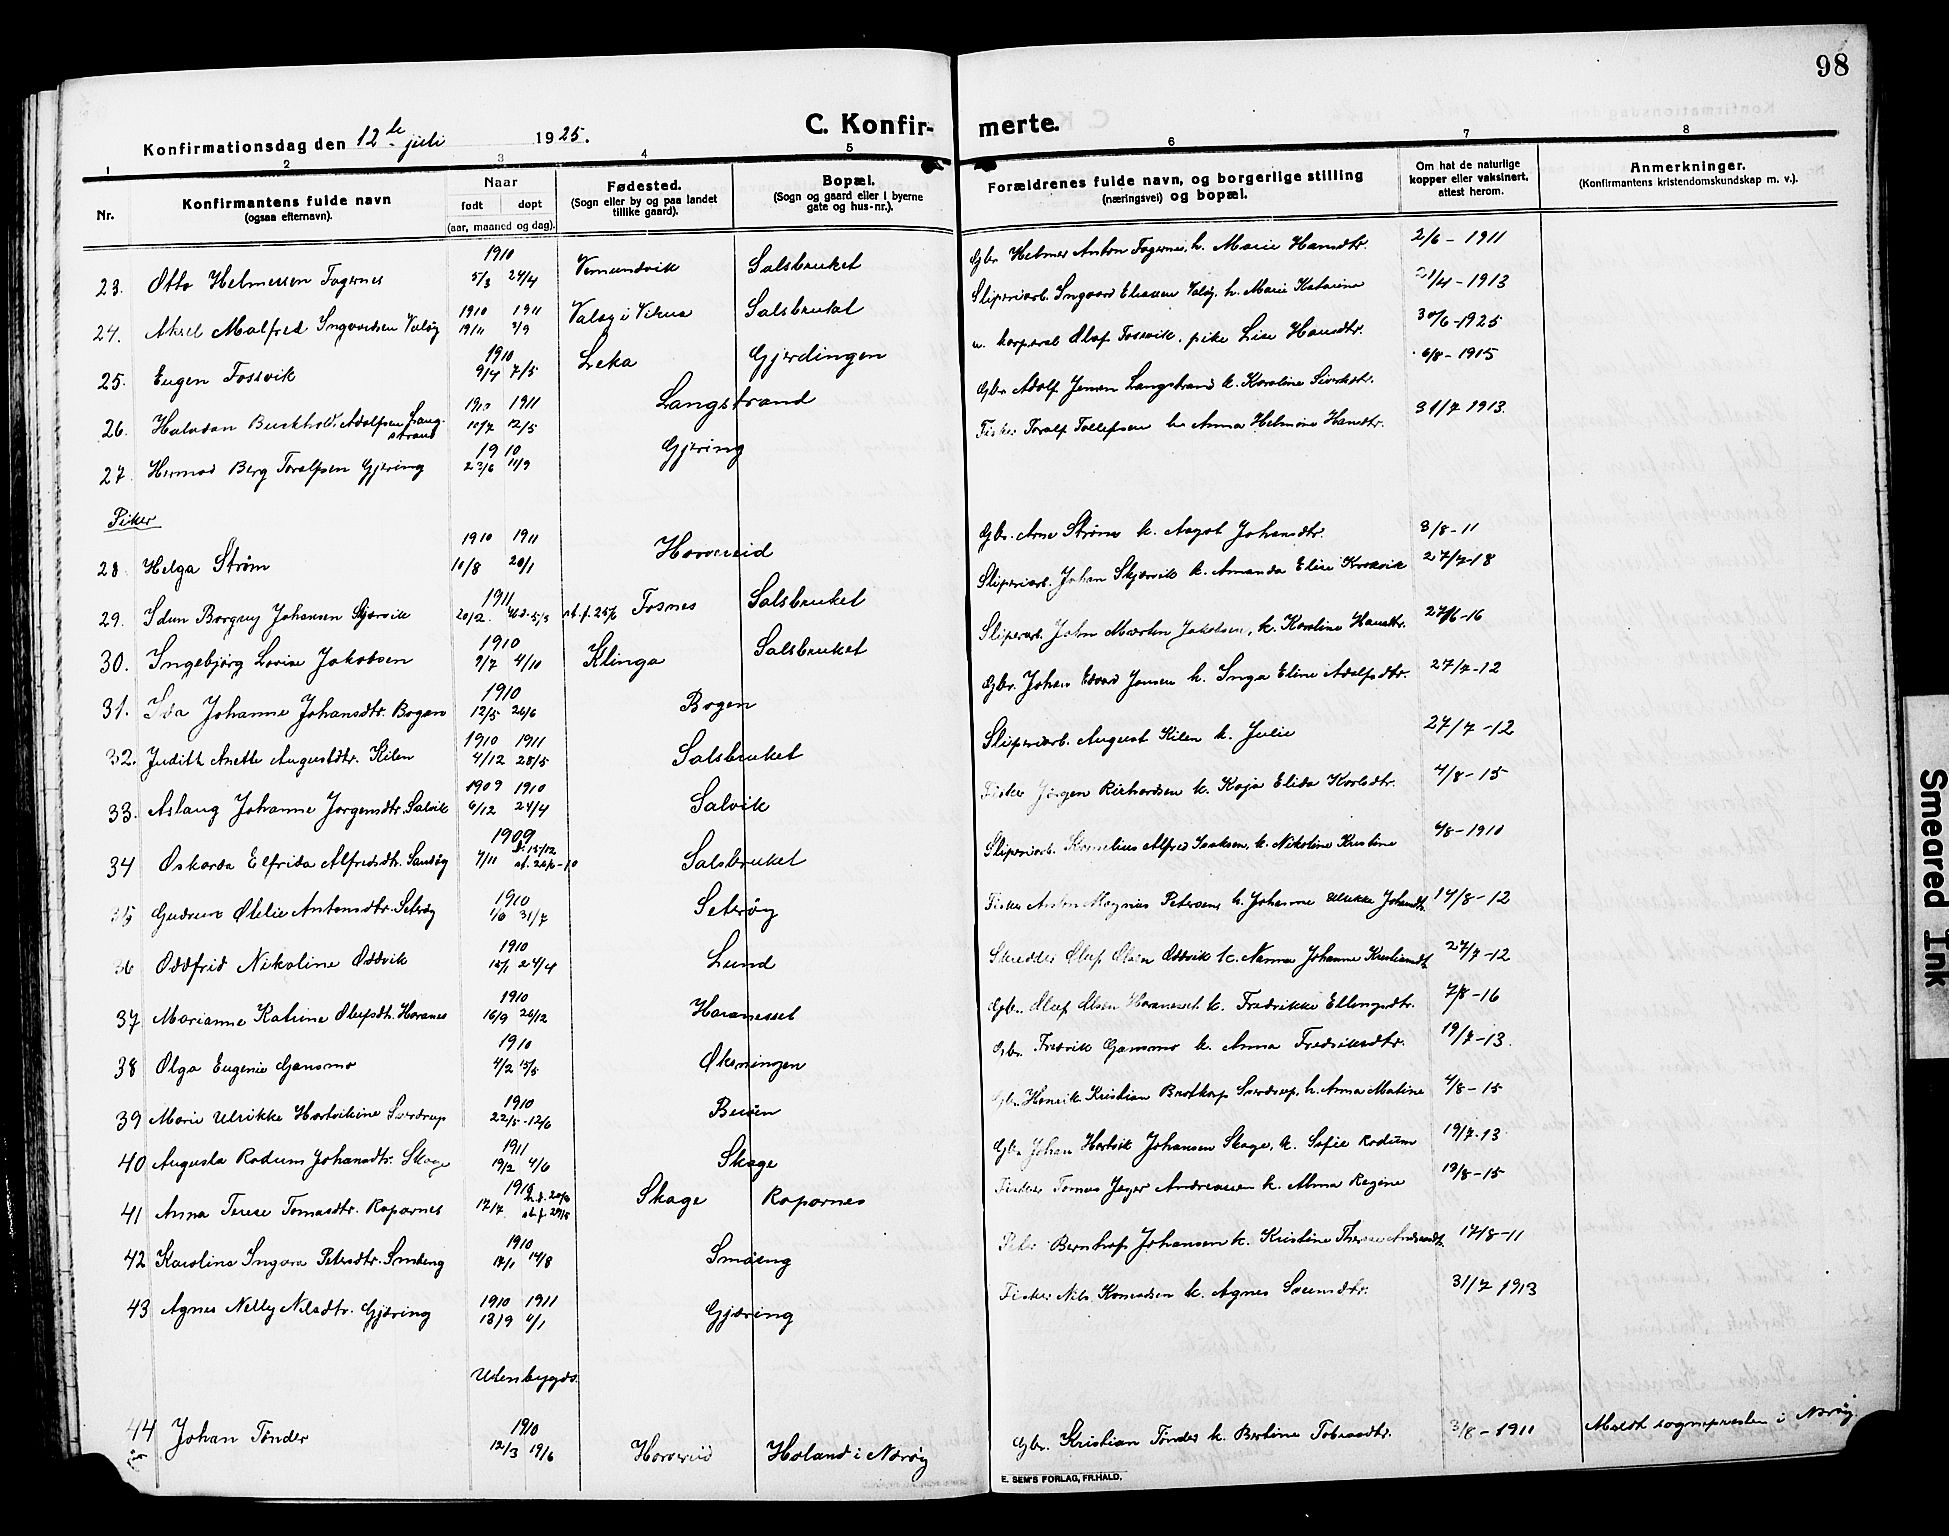 98
C. Konfir- merte.
Konfirmationsdag den 12te juli 1925.
1 2 3 4 5 6 7 8
Nr.
Konfirmantens fulde navn
(ogsaa efternavn).
Naar
født døpt
(aar, maaned og dag).
Fødested.
(Sogn eller by og paa landet
tillike gaard).
Bopæl.
(Sogn og gaard eller i byerne
gate og hus-nr.).
Forældrenes fulde navn, og borgerlige stilling
(næringsvei) og bopæl.
Om hat de naturlige
kopper eller vaksinert,
attest herom.
Anmerkninger.
(Konfirmantens kristendomskundskap m. v.).
23. Otto Helmersen Fagernes 1910 5/3 24/4 Vemundvik Salsbruket Gbr. Helmer Anton Fagernes, h. Marie Hansdtr. 2/6 - 1911
24. Aksel Malfred Ingvardsen Valøy 1910 1911 19/11 Valøy i Vikna Salsbruket Sliperiarb. Ingvard Eliassen Valøy, h. Marie Katarina 21/4 - 1913
25. Eugen Fossvik 1910 9/4 7/5 Leka Gjerdingen u. korporal Olaf Fossvik, pike Lise Hansdtr. 30/6 - 1925
26. Halvdan Adolfsen Langstrand 1910 1911 10/7 12/5 Langstrand Gbr. Adolf Jensen Langstrand h. Karoline 6/8 - 1915
27. Hermod Berg Toralfsen Gjæring 1910 23/6 11/9 Gjæring Fisker Toralf Tollefsen h. Anna Helmine Hansdtr. 31/7 1913.
Piker
28 Helga Strøm 1910 1911 10/8 20/1 Horvereid Gbr. Arne Strøm h. Aagot Johansdtr. 3/8 - 11
29. Idun Borgny Johansen Skjærvik 1911 20/2. st. f. 25/6 Fosnes Salsbruket Sliperiarb. Johan Skjærvik h. Amanda Elise 27/7 - 18
30. Ingebjørg Lovise Jakobsen 1910 9/7 4/10 Klinga Salsbruket Sliperiarb. John Martin Jakobsen, h. Karoline Hansdtr. 27/6 - 16
31. Ida Johanne Johansdtr. Bogen 1910 12/5 26/6 Bogen Gbr. Johan Edvard Jensen h. Inga Eline Adolfsdtr. 27/7 - 12
32. Judith Anette Augustdtr. Kilen 1910 1911 4/12 28/5 Salsbruket Sliperiarb. August Kilen h. Julie 27/7 - 12
33. Aslaug Johanne Jørgensdtr. Salvik 1909 1910 6/12 24/4 Salvik Fisker Jørgen Richardsen h. Kaja Elida Karlsdtr. 4/8 - 15
34 Oskarda Elfrida Alfredsdtr. Sandøy 1909 7/11 Salsbruket Sliperiarb. Kornelius Alfred Isaksen, h. Nikoline Kristine 4/8 - 1910
35 Gudrun Otelie Antonsdtr. Seterøy 1910 1/6 31/7 Seterøy Fisker Anton Magnus Petersen h. Johanne Ulrikke Johansdtr. 14/8 - 12
36 Oddfrid Nikoline Oddvik 1910 24/4 Lund Skredder Oluf Olsen Oddvik h. Nanna Johanne Kristiansdtr. 27/7 - 12
37 Marianne Katrine Olufsdtr. Horanes 1910 16/9 26/12 Horanesset Gbr. Oluf Olsen Horanesset h. Fredrikke Ellingsdtr. 7/8 - 16
38 Olga Eugenie Gansmo 1910 4/2 15/5 Gbr. Fredrik Gansmo h. Anna Fredriksdtr. 19/7 - 13.
39 Marie Ulrikke Hartvikine Sverdrup 1910 22/5 - 12/6 Gbr. Henrik Kristian Sverdrup, h. Anna Matine 4/8 - 15
40 Augusta Rodum Johansdtr. Skage 1911 19/2 4/6 Skage Gbr. Johan Hartvik Johansen Skage, h. Sofie Rodum 19/7 - 13
41 Anna Terese Tomasdtr. Ropornes 1910 17/7. Skage Ropornes Fisker Tomas Jæger Andreassen h. Alma Regine 19/8 - 15
42 Karoline Ingvara Petersdtr. Småeng 1910 17/1 14/8 Småeng Peter Bernhof Johansen h. Kristine Therese 17/8 - 11
43 Agnes Nelly Nilsdtr. Gjæring 1910 1911 13/9 Gjæring Fisker Nils Konradsen h. Agnes Svensdtr. 31/7 1913
Utenbygds.
44 Johan Tønder 1910 12/3 19/6 Horvereid Holand i Nærøy Gbr. Kristian Tønder h. Bertine Tobiasdtr. 3/8 - 1911 Meldt sognepresten i Nærøy.
E. SEM'S FORLAG, FR.HALD.
Smeared Ink